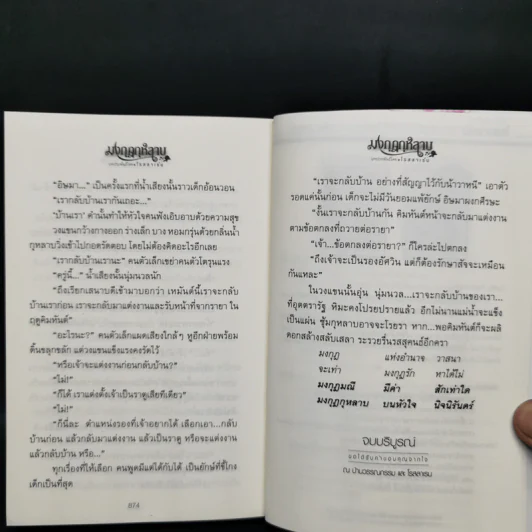 มงกุฎกุหลาบ
"อิษมา..." เป็นครั้งแรกที่น้ำเสียงนั้นราวเด็กอ้อนวอน
"เรากลับบ้านเรากันเถอะ..."
"บ้านเรา" คำนั้นทำให้หัวใจคนฟังเอิบอาบด้วยความสุข
วงแขนกว้างกางออก ร่างเล็ก บาง หอมกรุ่นด้วยกลิ่นน้ำ
กุหลาบวิ่งเข้าไปกอดรัดตอบ โดยไม่ต้องคิดอะไรอีกเลย
"เรากลับบ้านเรานะ" คนตัวเล็กเขย่าคนตัวโตรุนแรง
"ครู่นี้..." น้ำเสียงนั้นนุ่มนวลนัก
"ถึงเรียกเสนาบดีเข้ามาบอกว่า เหมันต์นี้เราจะกลับ
บ้านเราก่อน เราจะกลับมาแต่งงานและรับหน้าที่จากรายา ใน
ฤดูคิมหันต์"
"อะไรนะ?" คนตัวเล็กแผดเสียงใกล้ๆ หูอีกฝ่ายพร้อม
ดิ้นขลุกขลัก แต่วงแขนแข็งแรงคงรัดไว้
"หรือเจ้าจะแต่งงานก่อนกลับบ้าน?"
"ไม่!"
"ก็ได้ เราแต่งตั้งเจ้าเป็นราตูเสียทีเดียว"
"ไม่!"
"ก็นี่ละ ตำแหน่งรองที่เจ้าอยากได้ เลือกเอา...กลับ
บ้านก่อน แล้วกลับมาแต่งงาน แล้วเป็นราตู หรือจะแต่งงาน
แล้วกลับบ้าน หรือ..."
ทุกเรื่องที่ให้เลือก คนพูดมีแต่ได้กับได้ เป็นยักษ์ที่ขี้โกง
เด็กเป็นที่สุด
074
มงกุฎกุหลาบ
"เราจะกลับบ้าน อย่างที่สัญญาไว้กับน้าวาหนี" เอาตัว
รอดแค่นั้นก่อน เด็กจะไม่มีวันยอมแพ้ยักษ์ อิษมาผงกศีรษะ
"งั้นเราจะกลับบ้านกัน คิมหันต์หน้าจะกลับมาแต่งงาน
ตามข้อตกลงที่ทวงถามต่อรายา"
"เจ้า...ข้อตกลงต่อรายา?" ก็ใครล่ะไปตกลง
"ถึงเจ้าจะเป็นรองอัศวิน แต่ก็ต้องรักษาสัจจะเหมือน
กันแหละ"
ในวงแขนนั้นอุ่น นุ่มนวล...เราจะกลับบ้านของเรา...
ที่อุดตรารัฐ หิมะคงโปรยปรายแล้ว อีกไม่นานแม่น้ำจะแข็ง
เป็นแผ่น ซุ้มกุหลาบอาจจะโรยรา หาก...พอคิมหันต์ก็จะผลิ
ดอกสล้างสลับเสลา ระรวยรื่นรสสุคนธ์อีกครา
มงกุฎ แห่งอำนาจ วาสนา
จะเท่า มงกุฎรัก หาได้ไม่
มงกุฎมณี มีค่า สักเท่าใด
มงกุฎกุหลาบ บนหัวใจ นิจนิรันดร์
จบบริบูรณ์
ขอได้รับความขอบคุณจากใจ
ณ บ้านวรรณกรรม และ โรสลาเรน